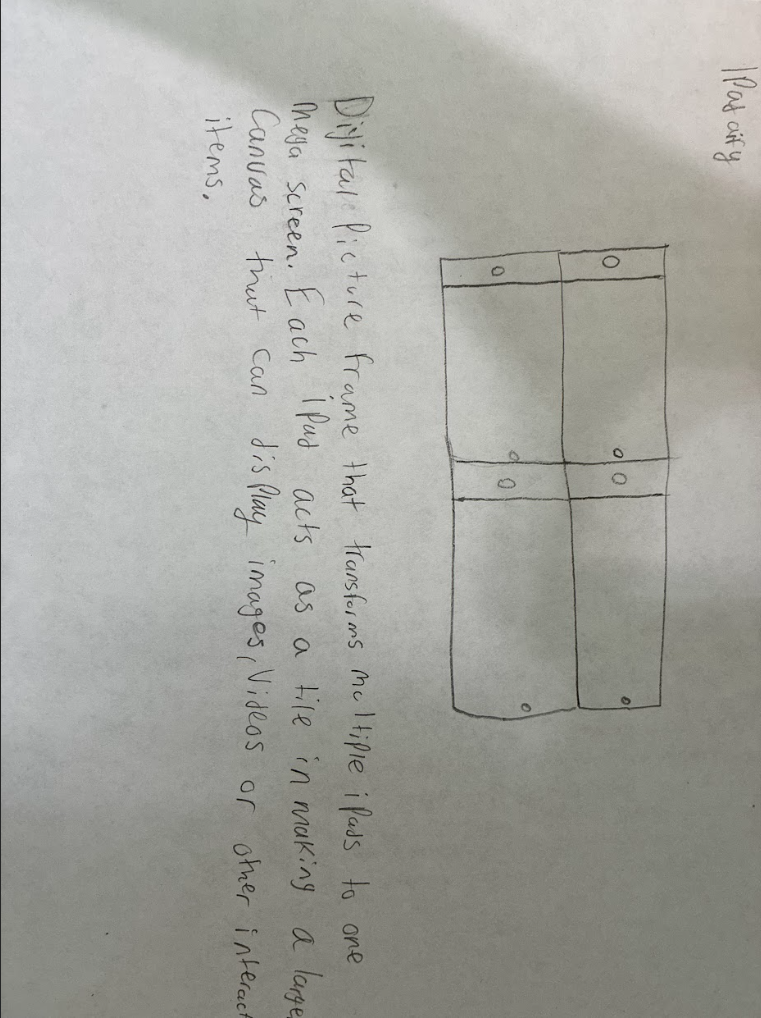 IPadify
Digital Picture frame that transforms multiple iPads to one
Mega screen. Each iPad acts as a tile in making a large
Canvas that can display images, Videos or other interact
items.